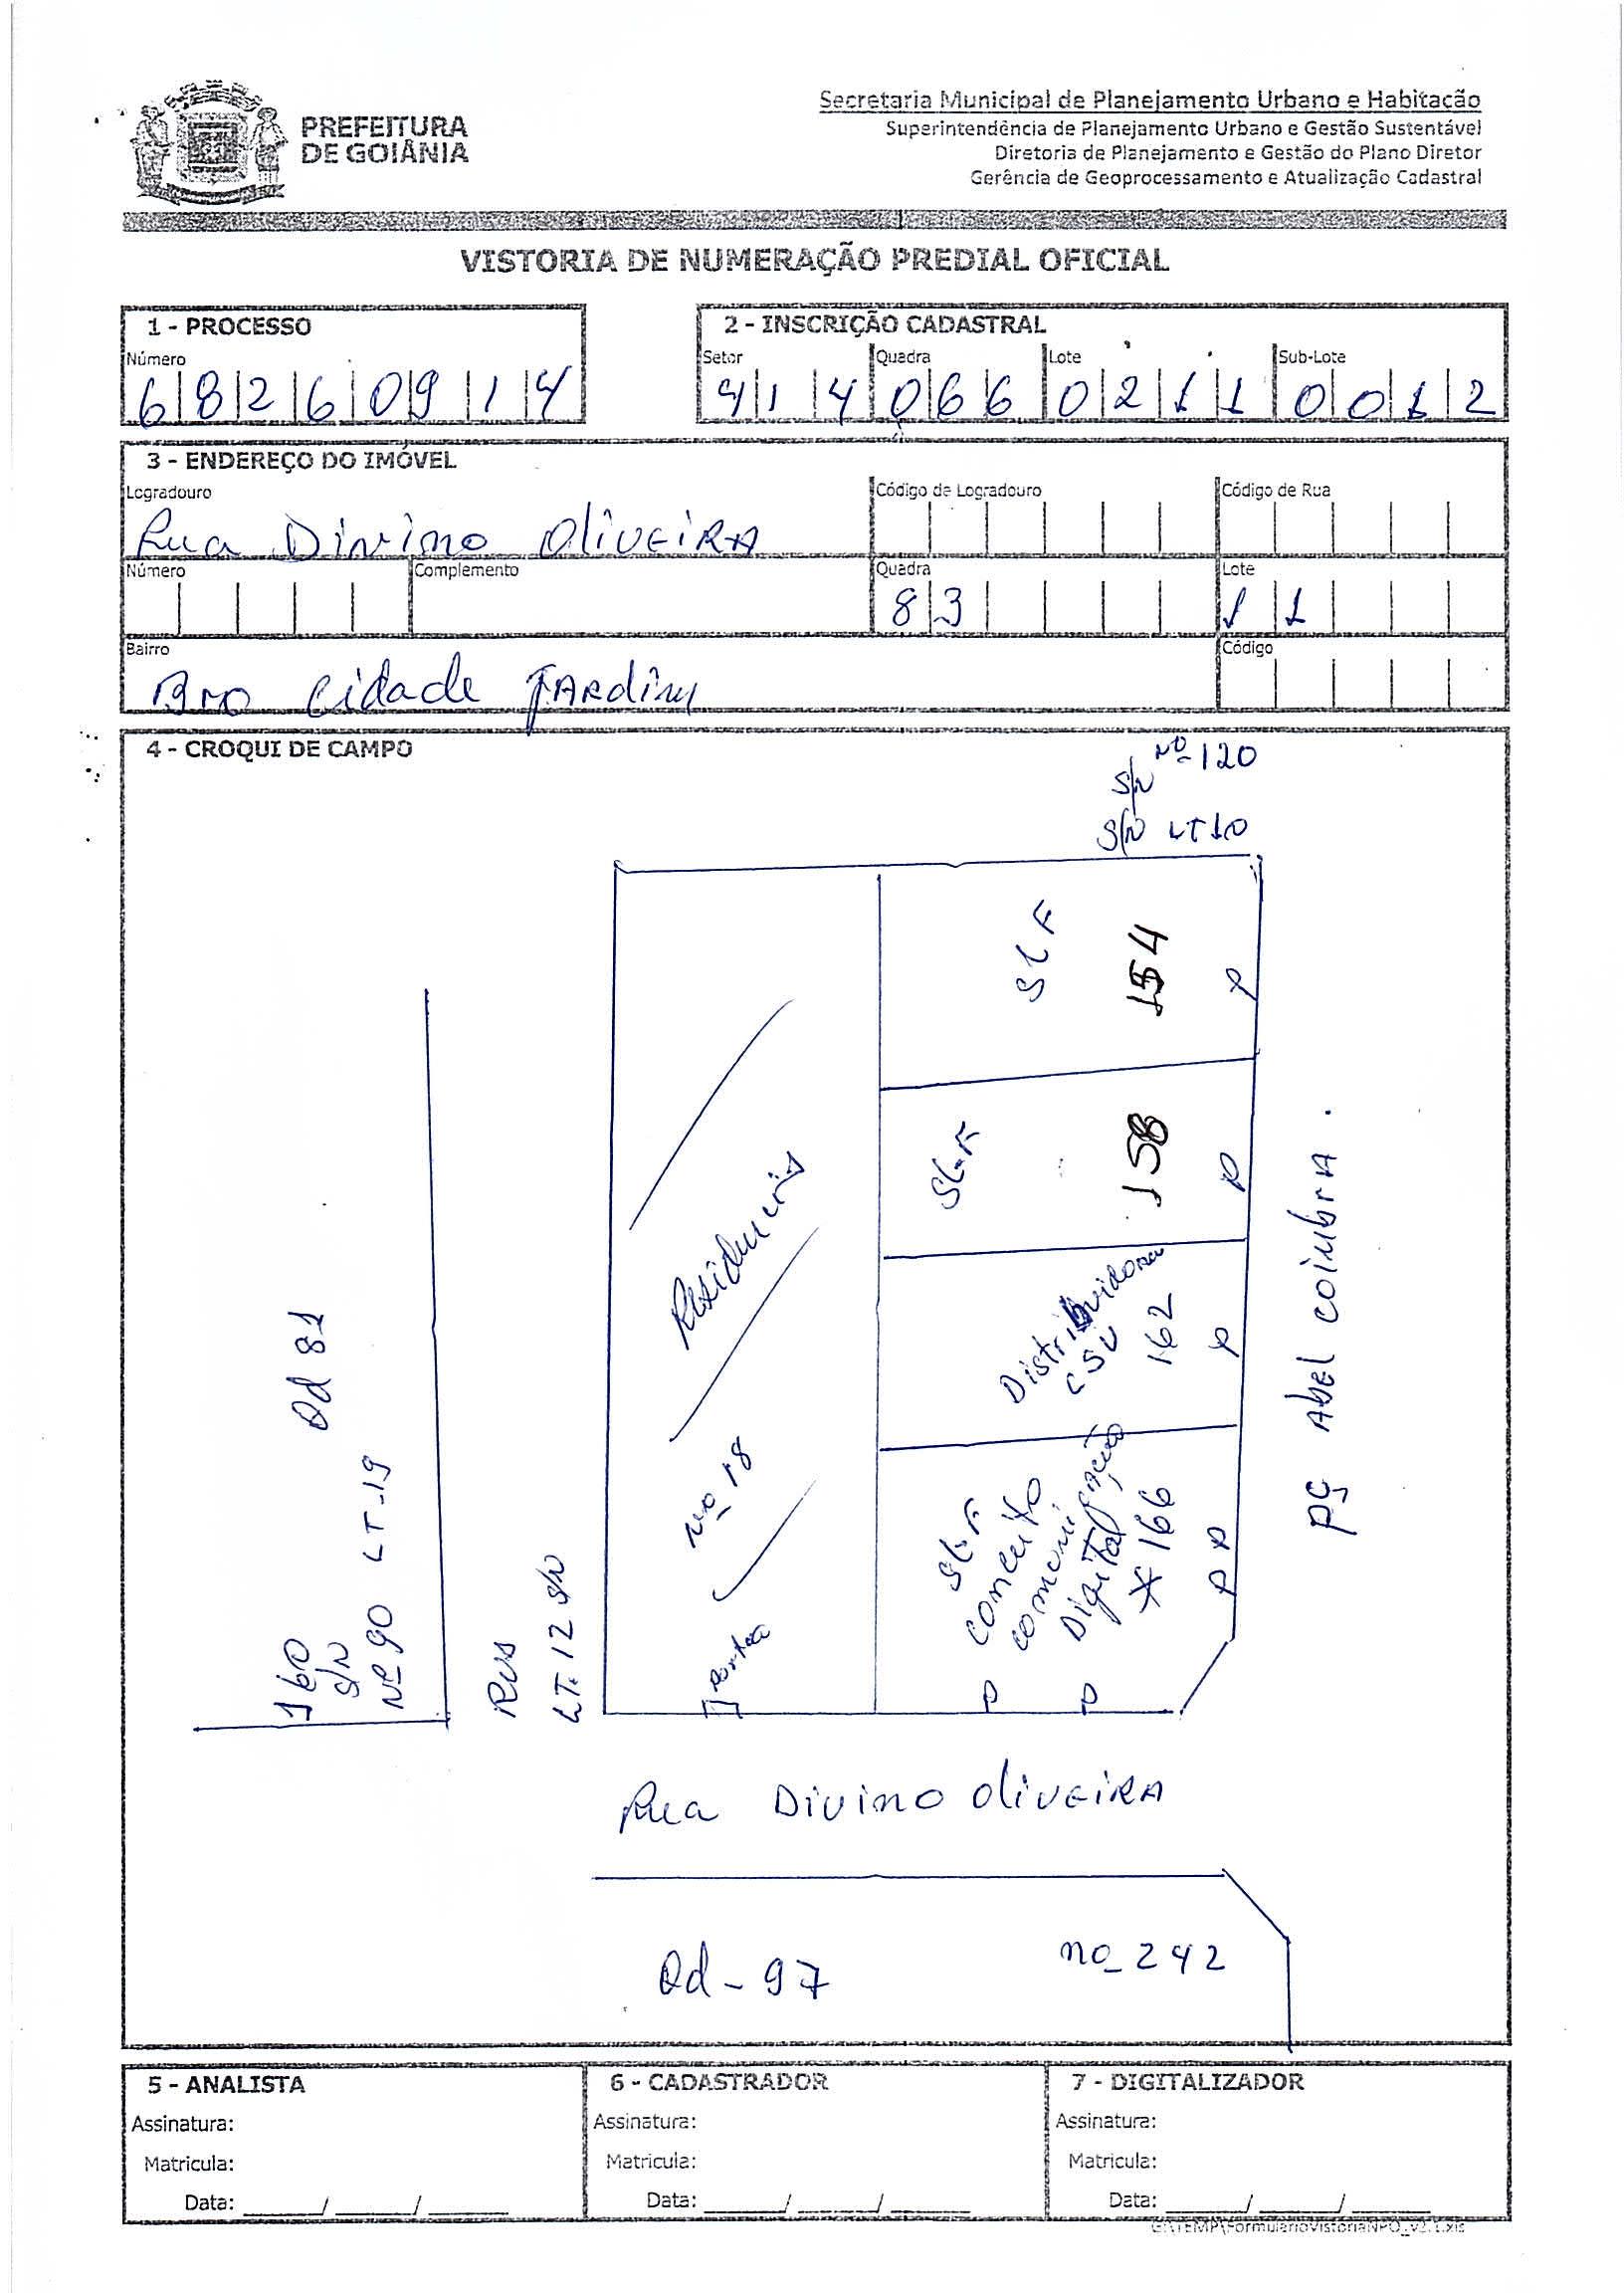 PREFEITURA
DE GOIÂNIA
Secretaria Municipal de Planejamento Urbano e Habitação
Superintendência de Planejamento Urbano e Gestão Sustentável
Diretoria de Planejamento e Gestão do Plano Diretor
Gerência de Geoprocessamento e Atualização Cadastral
VISTORIA DE NUMERAÇÃO PREDIAL OFICIAL
1 - PROCESSO
Número
6 8 2 6 0 9 1 4
2 - INSCRIÇÃO CADASTRAL
Setor Quadra Lote Sub-Lote
4 1 4 0 6 6 0 2 1 1 0 0 1 2
3 - ENDEREÇO DO IMÓVEL
Logradouro Código de Logradouro Código de Rua
Rua Divino OliVEiRA
Número Complemento Quadra Lote
8 3 1 1
Bairro Código
Bro Cidade JARdim
4 - CROQUI DE CAMPO
Nº 120
S/N
S/N LT 10
SLF
154
P
SLF
158
P
Distribuidora
CSV
162
P
SLF
conceito
Digital
* 166
P P
P P
Residencis
nº 18
Qd 81
160
S/N
Nº 90 LT-19
RUA
LT. 12 S/N
PÇ Abel coimbrA.
Rua Divino OliVEiRA
Qd - 97
nº 242
5 - ANALISTA
Assinatura:
Matricula:
Data: ____/____/____
6 - CADASTRADOR
Assinatura:
Matricula:
Data: ____/____/____
7 - DIGITALIZADOR
Assinatura:
Matricula:
Data: ____/____/____
G:\TEMP\FormularioVistoriaNPO_v2.1.xls